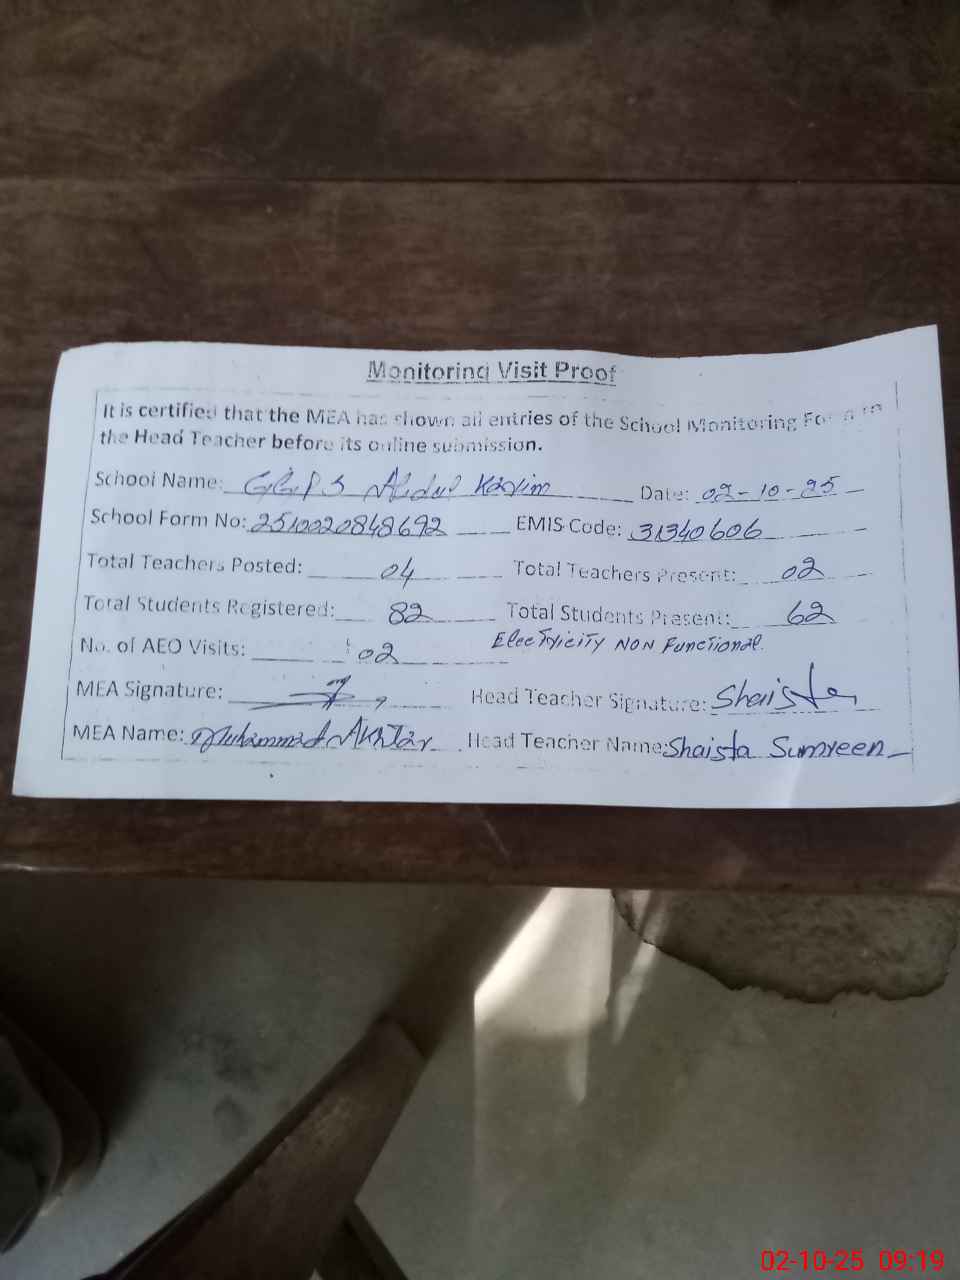 Monitoring Visit Proof
It is certified that the MEA has shown all entries of the School Monitoring Form to
the Head Teacher before its online submission.
School Name: GGPS Abdul Karim Date: 02-10-25
School Form No: 2510020848692 EMIS Code: 31340606
Total Teachers Posted: 04 Total Teachers Present: 02
Total Students Registered: 82 Total Students Present: 62
No. of AEO Visits: 02 Electricity NON Functional.
MEA Signature: Head Teacher Signature: Shaista
MEA Name: Muhammad Akhtar Head Teacher Name: Shaista Sumreen
02-10-25 09:19